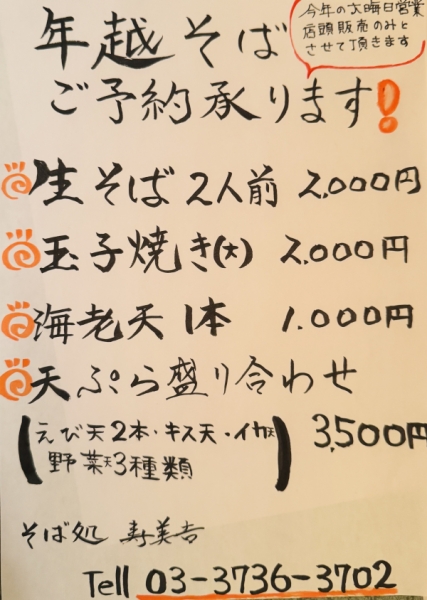 年越そば
今年の大晦日営業
店頭販売のみと
させて頂きます
ご予約承ります!
生そば 2人前 2,000円
玉子焼き(大) 2,000円
海老天 1本 1.000円
天ぷら盛り合わせ
(えび天2本・キス天・イカ天
野菜天3種類) 3,500円
そば処 寿美吉
Tell 03-3736-3702